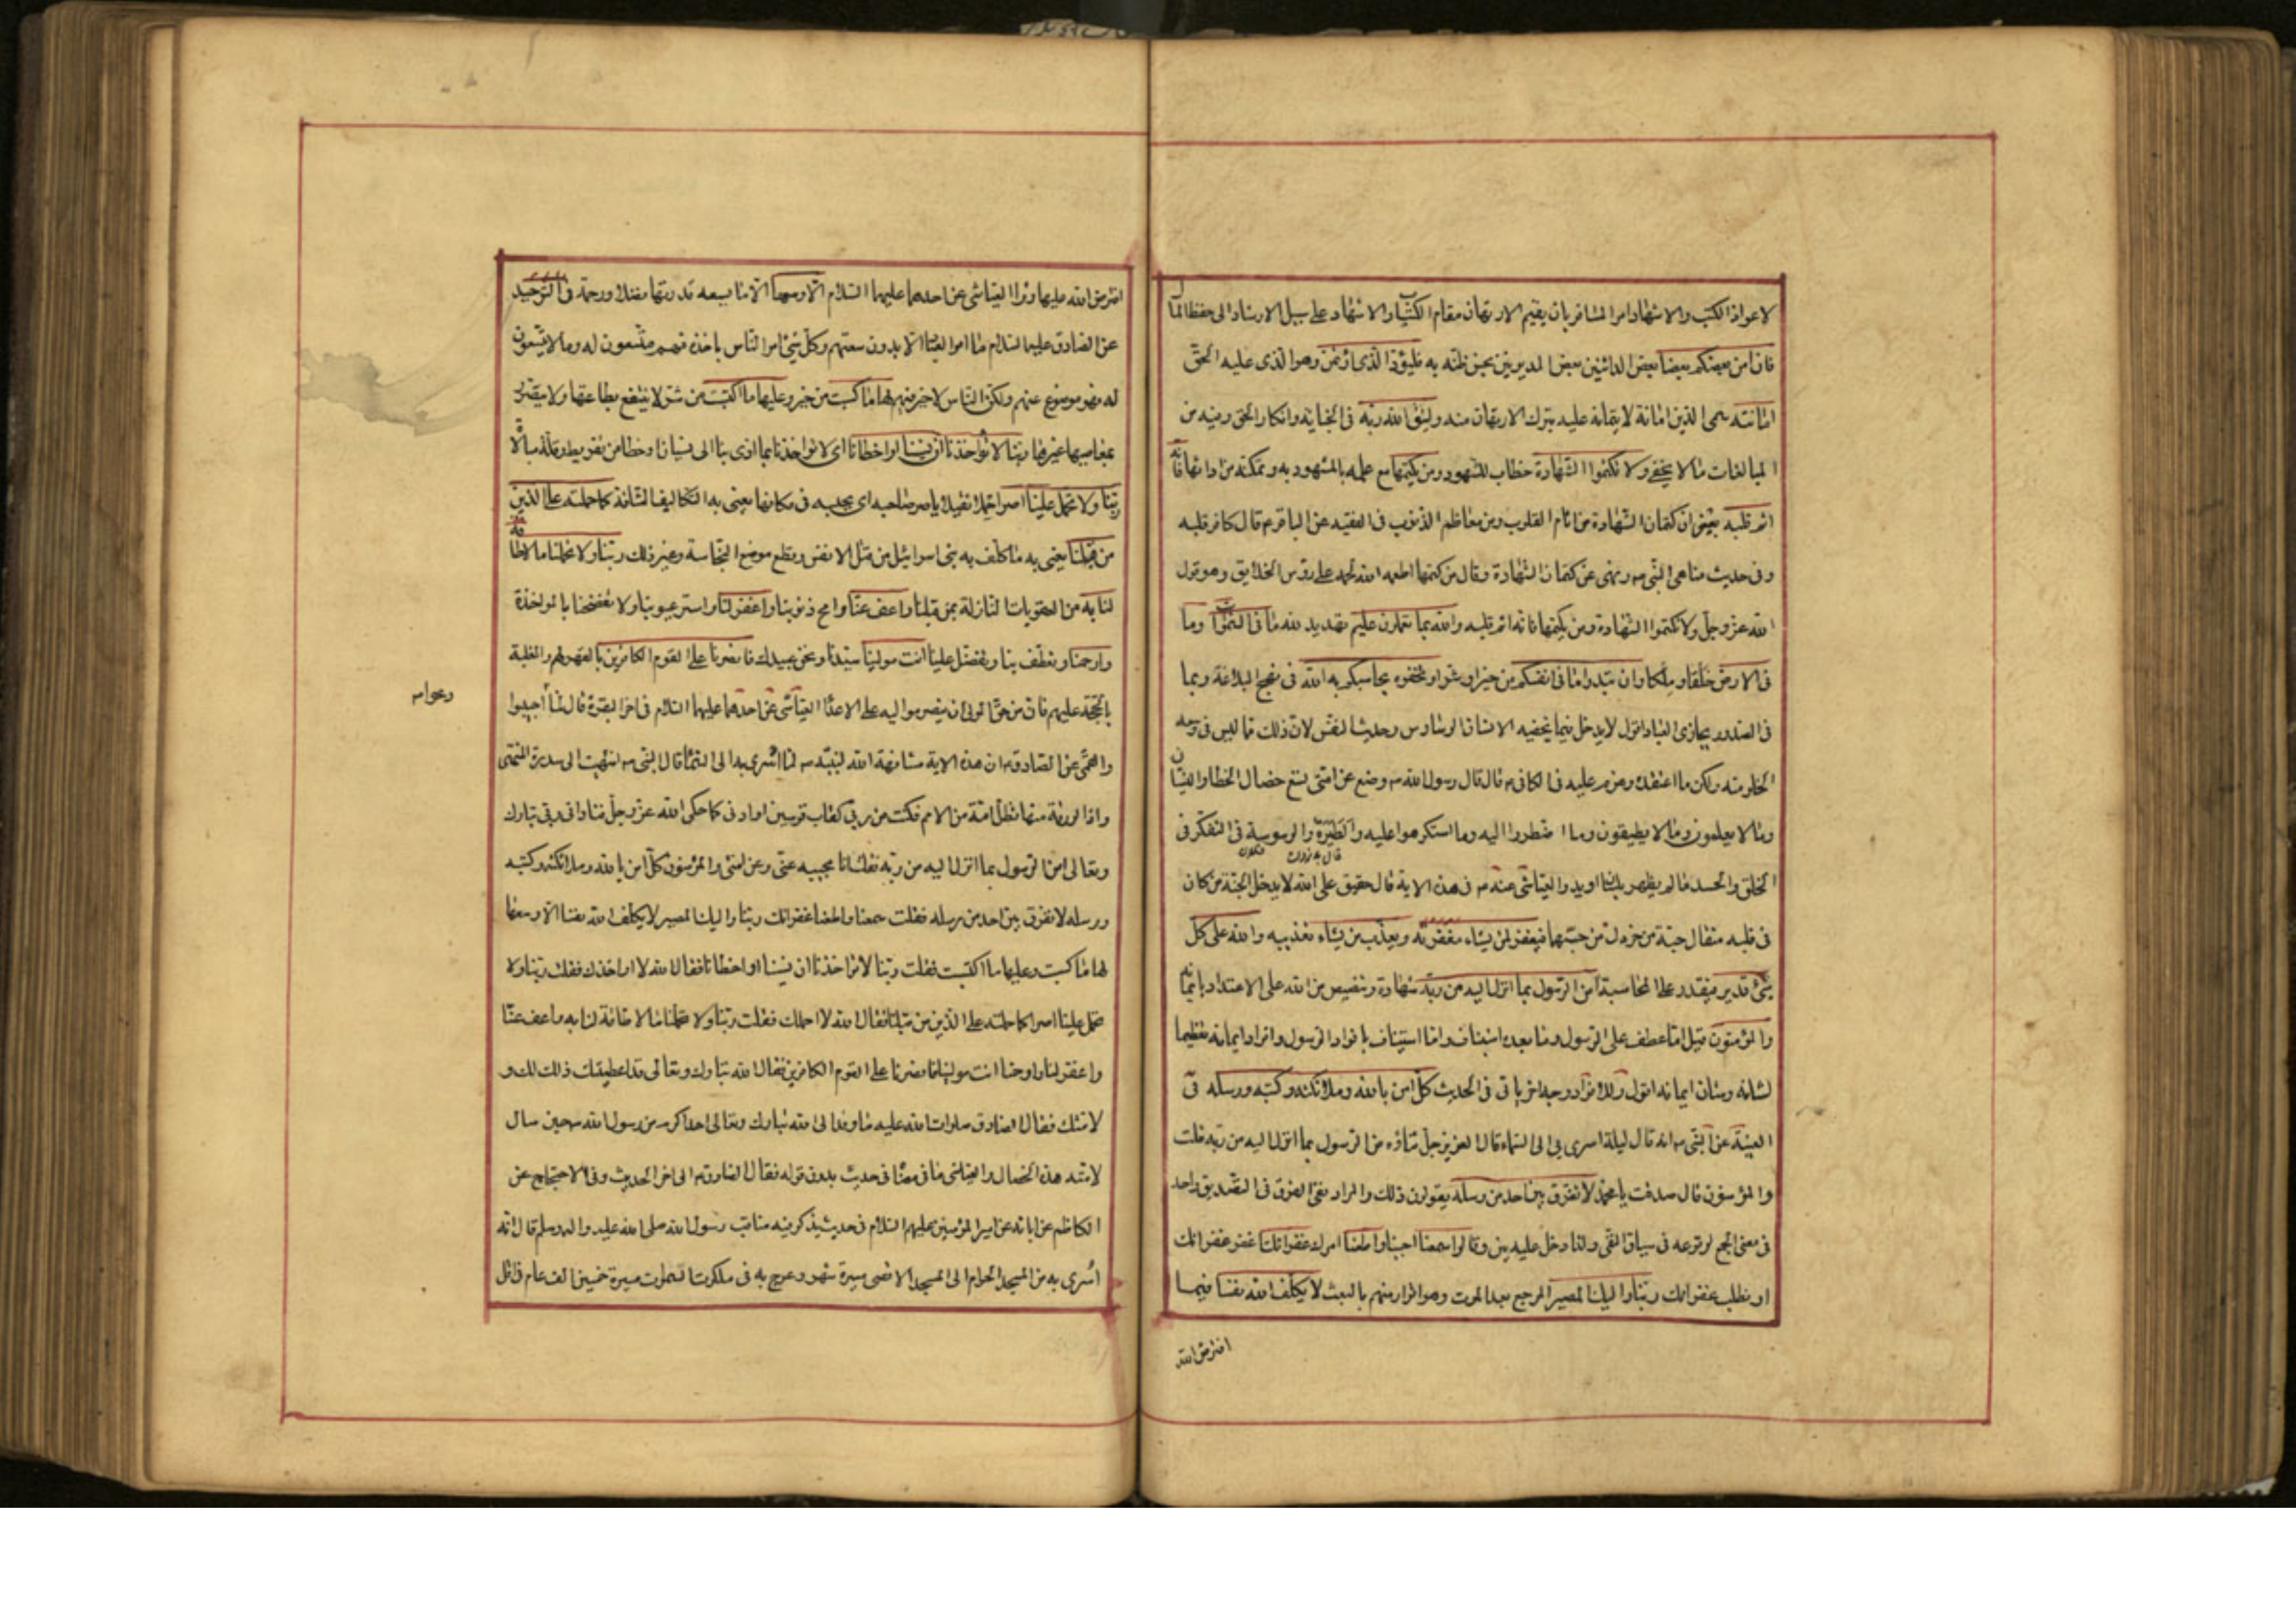 لاعواز الكتب والاشهاد امر المسافر بان يقيم الارتهان مقام الكتاب والاشهاد على سبيل الارشاد الى حفظ المال
فان امن بعضكم بعضا بعض الدائنين بعض المديونين بحسن ظنه به فليؤد الذى اؤتمن وهو الذى عليه الحق
امانته سمى الدين امانة لايتمانه عليه بترك الارتهان منه وليتق الله ربه فى الخيانة وانكار الحق وفيه من
المبالغات ما لا يخفى ولا تكتموا الشهادة خطاب للشهود ومن يكتمها مع علمه بالمشهود به وتمكنه من ادائها فانه
اثم قلبه يعنى ان كتمان الشهادة من اثام القلوب ومن معاظم الذنوب فى الفقيه عن الباقر ع قال كافر قلبه
وفى حديث مناهى النبى ص ونهى عن كتمان الشهادة وقال من كتمها اطعمه الله لحمه على رؤس الخلايق وهو قول
الله عز وجل ولا تكتموا الشهادة ومن يكتمها فانه اثم قلبه والله بما تعملون عليم تهديد لله ما فى السموات وما
فى الارض خلقا وملكا وان تبدوا ما فى انفسكم من خير او شر او تخفوه يحاسبكم به الله فى نهج البلاغة وبما
فى الصدور يجازى العباد اقول لا يدخل فيما يخفيه الانسان الوساوس وحديث النفس لان ذلك مما ليس فى وسعه
الخلو منه ولكن ما اعتقده وعزم عليه فى الكافى ع قال قال رسول الله ص وضع عن امتى تسع خصال الخطا والنسيان
وما لا يعلمون وما لا يطيقون وما اضطروا اليه وما استكرهوا عليه والطيرة والوسوسة فى التفكر فى
الخلق والحسد ما لم يظهر بلسان او يد والعياشى عنه ع فى هذه الاية قال حقيق على الله لا يدخل الجنة من كان
فى قلبه مثقال حبة من خردل من حبهما فيغفر لمن يشاء مغفرته ويعذب من يشاء تعذيبه والله على كل
شئ قدير فيقدر على المحاسبة امن الرسول بما انزل اليه من ربه شهادة وتنصيص من الله على الاعتداد بايمانه
والمؤمنون قيل اما عطف على الرسول وما بعده استيناف واما استيناف بافراد الرسول وافراد ايمانه تعظيما
لشانه وشان ايمانه اقول وللافراد وجه اخر ياتى فى الحديث كل امن بالله وملائكته وكتبه ورسله فى
الغيبة عن النبى ص انه قال ليلة اسرى بى الى السماء قال العزيز جل ثناؤه من الرسول بما انزل اليه من ربه قلت
والمؤمنون قال صدقت يا محمد لا نفرق بين احد من رسله يقولون ذلك والمراد نفى الفرق فى التصديق واحد
فى معنى الجمع لوقوعه فى سياق النفى ولذا دخل عليه بين وقالوا سمعنا اجبنا واطعنا امرك غفرانك اغفر غفرانك
او نطلب غفرانك ربنا واليك المصير المرجع بعد الموت وهو اقرار منهم بالبعث لا يكلف الله نفسا فيما
افترض الله
افترض الله عليها وزوا العياشى عن احدهما عليهما السلام الا وسعها الا ما يسعه قدرتها فضلا ورحمة فى التوحيد
عن الصادق عليه السلام ما امر العباد الا بدون سعتهم وكل شئ امر الناس باخذه فهم متسعون له وما لا يتسعون
له فهو موضوع عنهم ولكن الناس لا خير فيهم لها ما كسبت من خير وعليها ما اكتسبت من شر لا ينتفع بطاعتها ولا يتضرر
بمعاصيها غيرها ربنا لا تؤاخذنا ان نسينا او اخطانا اى لا تؤاخذنا بما ادى بنا الى نسيان او خطا من تفريط وقلة مبالاة
ربنا ولا تحمل علينا اصرا حملا ثقيلا ياصر صاحبه اى يحبسه فى مكانه يعنى به التكاليف الشاقة كما حملته على الذين
من قبلنا يعنى به ما كلف به بنى اسرائيل من قتل الانفس وقطع موضع النجاسة وغير ذلك ربنا ولا تحملنا ما لا طاقة
لنا به من العقوبات النازلة بمن قبلنا واعف عنا وامح ذنوبنا واغفر لنا واستر عيوبنا ولا تفضحنا بالمؤاخذة
وارحمنا وتعطف بنا وتفضل علينا انت مولينا سيدنا ونحن عبيدك فانصرنا على القوم الكافرين بالقهر لهم والغلبة
بالحجة عليهم فان من حق المولى ان ينصر مواليه على الاعداء العياشى عن احدهما عليهما السلام فى اخر البقرة قال لما اجيبوا
والقمى عن الصادق ع ان هذه الاية مشافهة الله لنبيه ص لما اسرى به الى السماء قال النبى ص انتهيت الى سدرة المنتهى
واذا الورقة منها تظل امة من الامم فكنت من ربى كقاب قوسين او ادنى كما حكى الله عز وجل فنادانى ربى تبارك
وتعالى امن الرسول بما انزل اليه من ربه فقلت انا مجيبه عنى وعن امتى والمؤمنون كل امن بالله وملائكته وكتبه
ورسله لا نفرق بين احد من رسله فقلت سمعنا واطعنا غفرانك ربنا واليك المصير لا يكلف الله نفسا الا وسعها
لها ما كسبت وعليها ما اكتسبت فقلت ربنا لا تؤاخذنا ان نسينا او اخطانا فقال الله لا اواخذك فقلت ربنا ولا
تحمل علينا اصرا كما حملته على الذين من قبلنا فقال الله لا احملك فقلت ربنا ولا تحملنا ما لا طاقة لنا به واعف عنا
واغفر لنا وارحمنا انت مولينا فانصرنا على القوم الكافرين فقال الله تبارك وتعالى قد اعطيتك ذلك لك و
لامتك فقال الصادق صلوات الله عليه ما وفد الى الله تبارك وتعالى احد اكرم من رسول الله ص حين سال
لامته هذه الخصال والعياشى ما فى معناه فى حديث بدون قوله فقال الصادق ع الى اخر الحديث وفى الاحتجاج عن
الكاظم عن ابائه عن امير المؤمنين عليهم السلام فى حديث يذكر فيه مناقب رسول الله صلى الله عليه واله وسلم قال انه
اسرى به من المسجد الحرام الى المسجد الاقصى مسيرة شهر وعرج به فى ملكوت السموات مسيرة خمسين الف عام فى اقل